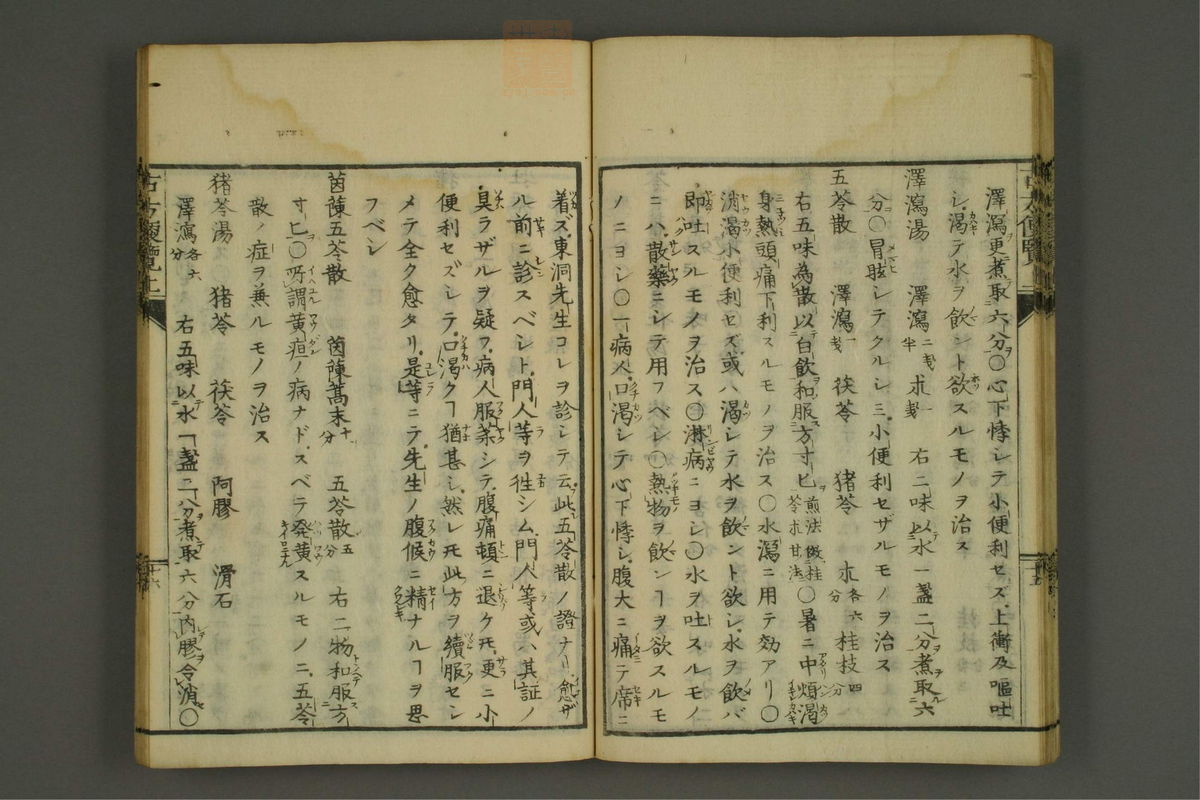 澤瀉更煮取六分○心下悸シテ小便利セズ上衝及嘔吐
シ渇テ水ヲ飲ント欲スルモノヲ治ス
澤瀉湯 澤瀉二戔半 朮一戔 右二味以水一盞二分煮取六
分○冒眩シテクルシミ小便利セザルモノヲ治ス
五苓散 澤瀉一戔 茯苓 猪苓 朮各六分 桂枝四分
右五味為散以白飲和服方寸匕 煎法倣桂苓朮甘法○暑ニ中煩渇
身熱頭痛下利スルモノヲ治ス○水瀉ニ用テ効アリ○
消渇小便利セズ或ハ渇シテ水ヲ飲ント欲シ水ヲ飲バ
即吐スルモノヲ治ス○淋病ニヨシ○水ヲ吐スルモノ
ニハ散藥ニシテ用フベシ○熱物ヲ飲ンヿヲ欲スルモ
ノニヨシ○一病人口渇シテ心下悸シ腹大ニ痛テ席ニ
着ズ東洞先生コレヲ診シテ云此五苓散ノ證ナリ愈ザ
ル前ニ診スベシト門人等ヲ徃シム門人等或ハ其証ノ
臭ラザルヲ疑フ病人服薬シテ腹痛頓ニ退ケ𪜈更ニ小
便利セズシテ口渇クヿ猶甚シ然レ𪜈此方ヲ續服セシ
メテ全ク愈タリ是等ニテ先生ノ腹候ニ精ナルヿヲ思
フベシ
茵陳五苓散 茵陳蒿末十分 五苓散五分 右二物和服方
寸匕○所謂黄疸ノ病ナドスベテ発黄スルモノニ五苓
散ノ症ヲ兼ルモノヲ治ス
猪苓湯 猪苓 茯苓 阿膠 滑石
澤瀉各六分 右五味以水一盞二分煮取六分内膠令消○